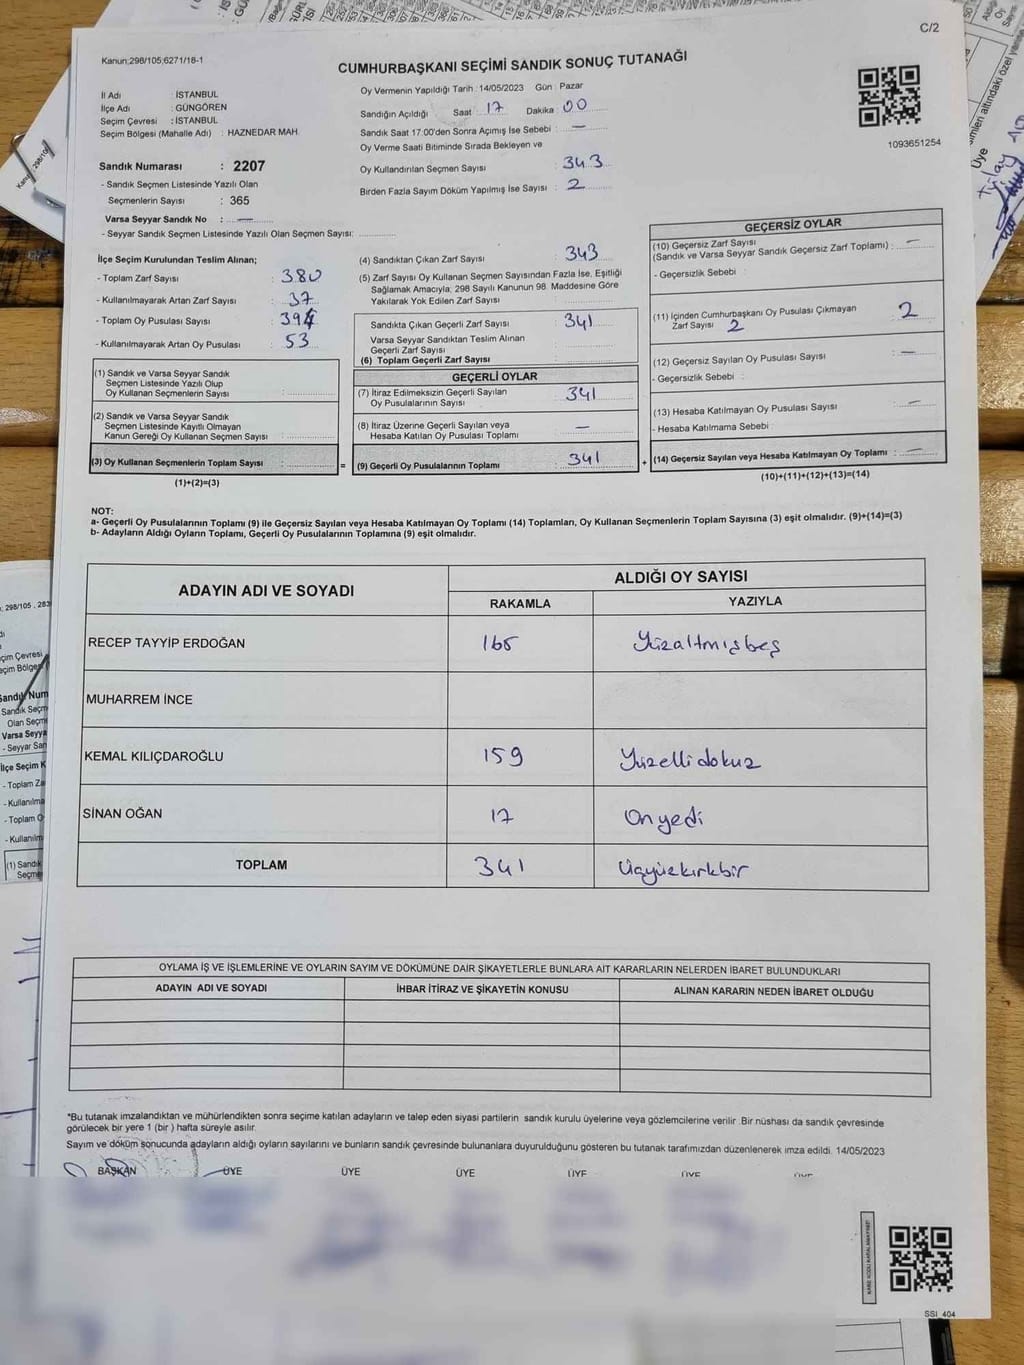 C/2
Kanun;298/105;6271/18-1
CUMHURBAŞKANI SEÇİMİ SANDIK SONUÇ TUTANAĞI
İl Adı : İSTANBUL
İlçe Adı : GÜNGÖREN
Seçim Çevresi : İSTANBUL
Seçim Bölgesi (Mahalle Adı) : HAZNEDAR MAH.
Sandık Numarası : 2207
- Sandık Seçmen Listesinde Yazılı Olan
Seçmenlerin Sayısı : 365
Varsa Seyyar Sandık No : —
- Seyyar Sandık Seçmen Listesinde Yazılı Olan Seçmen Sayısı:
Oy Vermenin Yapıldığı Tarih : 14/05/2023 Gün : Pazar
Sandığın Açıldığı Saat : 17 Dakika : 00
Sandık Saat 17:00'den Sonra Açımış İse Sebebi : —
Oy Verme Saati Bitiminde Sırada Bekleyen ve
Oy Kullandırılan Seçmen Sayısı : 343
Birden Fazla Sayım Döküm Yapılmış İse Sayısı : 2
1093651254
İlçe Seçim Kurulundan Teslim Alınan;
- Toplam Zarf Sayısı : 380
- Kullanılmayarak Artan Zarf Sayısı : 37
- Toplam Oy Pusulası Sayısı : 394
- Kullanılmayarak Artan Oy Pusulası : 53
(1) Sandık ve Varsa Seyyar Sandık
Seçmen Listesinde Yazılı Olup
Oy Kullanan Seçmenlerin Sayısı :
(2) Sandık ve Varsa Seyyar Sandık
Seçmen Listesinde Kayıtlı Olmayan
Kanun Gereği Oy Kullanan Seçmen Sayısı :
(3) Oy Kullanan Seçmenlerin Toplam Sayısı :
(1)+(2)=(3)
(4) Sandıktan Çıkan Zarf Sayısı : 343
(5) Zarf Sayısı Oy Kullanan Seçmen Sayısından Fazla İse, Eşitliği
Sağlamak Amacıyla; 298 Sayılı Kanunun 98. Maddesine Göre
Yakılarak Yok Edilen Zarf Sayısı :
Sandıkta Çıkan Geçerli Zarf Sayısı : 341
Varsa Seyyar Sandıktan Teslim Alınan
Geçerli Zarf Sayısı :
(6) Toplam Geçerli Zarf Sayısı :
GEÇERLİ OYLAR
(7) İtiraz Edilmeksizin Geçerli Sayılan
Oy Pusulalarının Sayısı : 341
(8) İtiraz Üzerine Geçerli Sayılan veya
Hesaba Katılan Oy Pusulası Toplamı : —
=
(9) Geçerli Oy Pusulalarının Toplamı : 341
+
GEÇERSİZ OYLAR
(10) Geçersiz Zarf Sayısı
(Sandık ve Varsa Seyyar Sandık Geçersiz Zarf Toplamı) : —
- Geçersizlik Sebebi :
(11) İçinden Cumhurbaşkanı Oy Pusulası Çıkmayan
Zarf Sayısı 2 : 2
(12) Geçersiz Sayılan Oy Pusulası Sayısı : —
- Geçersizlik Sebebi :
(13) Hesaba Katılmayan Oy Pusulası Sayısı : —
- Hesaba Katılmama Sebebi :
(14) Geçersiz Sayılan veya Hesaba Katılmayan Oy Toplamı : —
(10)+(11)+(12)+(13)=(14)
NOT:
a- Geçerli Oy Pusulalarının Toplamı (9) ile Geçersiz Sayılan veya Hesaba Katılmayan Oy Toplamı (14) Toplamları, Oy Kullanan Seçmenlerin Toplam Sayısına (3) eşit olmalıdır. (9)+(14)=(3)
b- Adayların Aldığı Oyların Toplamı, Geçerli Oy Pusulalarının Toplamına (9) eşit olmalıdır.
ADAYIN ADI VE SOYADI ALDIĞI OY SAYISI
RAKAMLA YAZIYLA
RECEP TAYYİP ERDOĞAN 165 Yüzaltmışbeş
MUHARREM İNCE
KEMAL KILIÇDAROĞLU 159 Yüzellidokuz
SİNAN OĞAN 17 Onyedi
TOPLAM 341 Üçyüzkırkbir
OYLAMA İŞ VE İŞLEMLERİNE VE OYLARIN SAYIM VE DÖKÜMÜNE DAİR ŞİKAYETLERLE BUNLARA AİT KARARLARIN NELERDEN İBARET BULUNDUKLARI
ADAYIN ADI VE SOYADI İHBAR İTİRAZ VE ŞİKAYETİN KONUSU ALINAN KARARIN NEDEN İBARET OLDUĞU
*Bu tutanak imzalandıktan ve mühürlendikten sonra seçime katılan adayların ve talep eden siyasi partilerin sandık kurulu üyelerine veya gözlemcilerine verilir. Bir nüshası da sandık çevresinde
görülecek bir yere 1 (bir ) hafta süreyle asılır.
Sayım ve döküm sonucunda adayların aldığı oyların sayılarını ve bunların sandık çevresinde bulunanlara duyurulduğunu gösteren bu tutanak tarafımızdan düzenlenerek imza edildi. 14/05/2023
BAŞKAN ÜYE ÜYE ÜYE ÜYE ÜYE
SSI_404